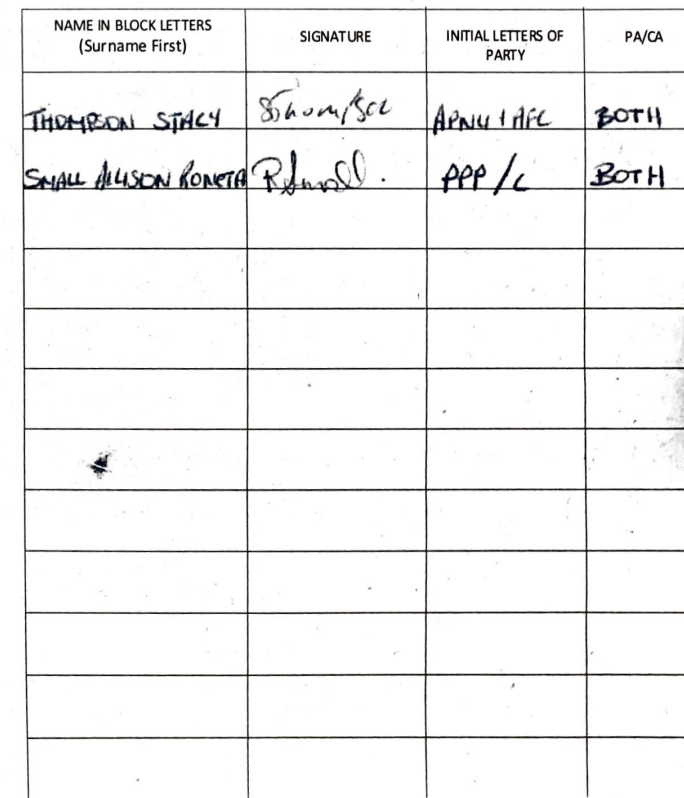 NAME IN BLOCK LETTERS (Surname First) SIGNATURE INITIAL LETTERS OF PARTY PA/CA
THOMPSON STACY SThompson APNU + AFC BOTH
SMALL ALLISON RONETA RSmall. PPP/C BOTH